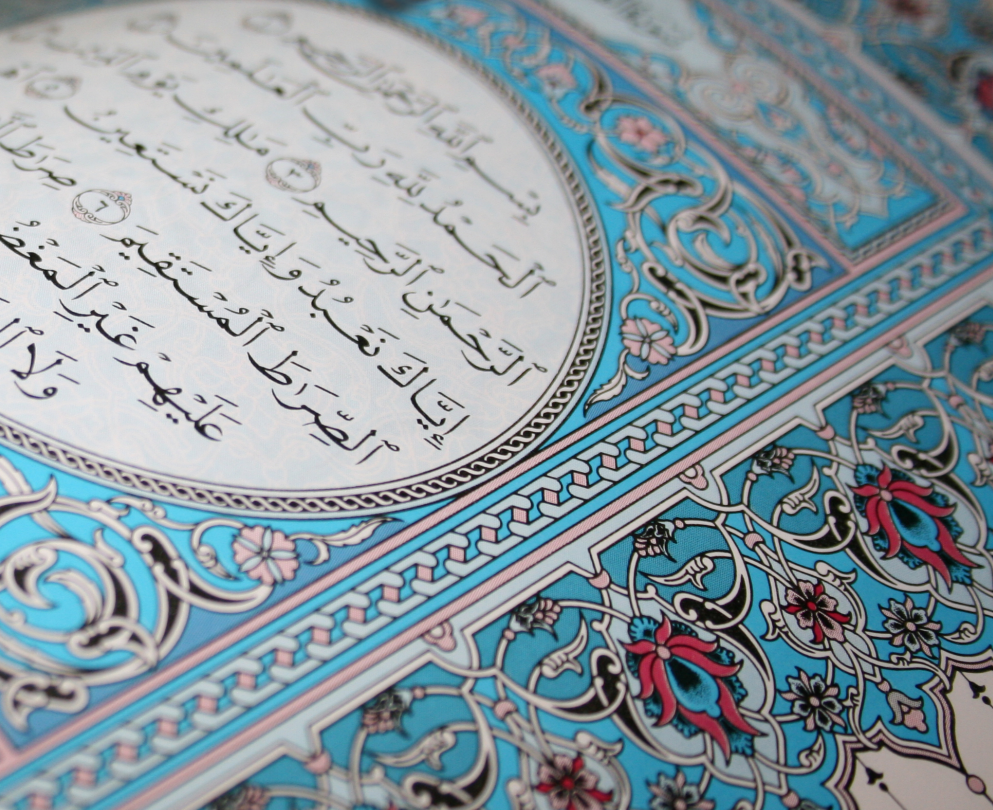 بِسْمِ ٱللَّهِ ٱلرَّحْمَٰنِ ٱلرَّحِيمِ
ٱلْحَمْدُ لِلَّهِ رَبِّ ٱلْعَٰلَمِينَ
ٱلرَّحْمَٰنِ ٱلرَّحِيمِ ٣ مَٰلِكِ يَوْمِ ٱلدِّينِ
إِيَّاكَ نَعْبُدُ وَإِيَّاكَ نَسْتَعِينُ
ٱلصِّرَٰطَ ٱلْمُسْتَقِيمَ ٦ صِرَٰطَ
عَلَيْهِمْ غَيْرِ ٱلْمَغْضُ
وَلَا